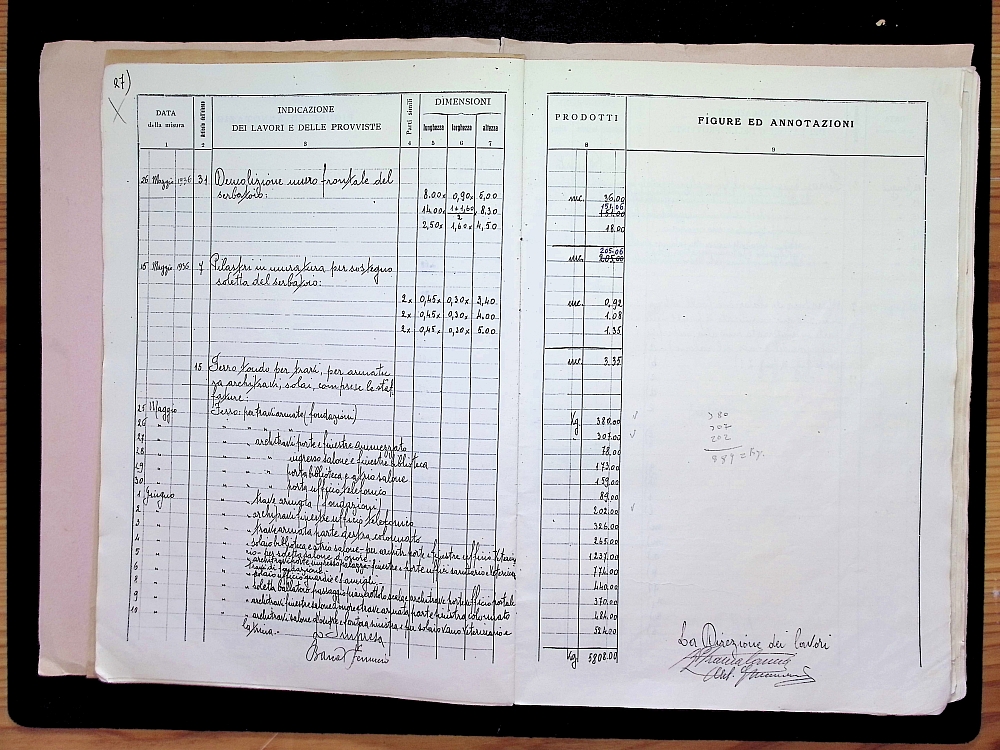 27)
DATA della misura
Articolo dell'elenco
INDICAZIONE
DEI LAVORI E DELLE PROVVISTE
Parti simili
DIMENSIONI
lunghezza larghezza altezza
PRODOTTI
FIGURE ED ANNOTAZIONI
1 2 3 4 5 6 7 8 9
26 Maggio 1936 31 Demolizione muro frontale del
serbatoio:
8.00x 0,90x 5,00 mc. 36.00
14.00x 1+1,60/2 x 8.30 151.06 151.00
2,50x 1,60x 4,50 18.00
205.06
mc. 205.00
15 Maggio 1936 7 Pilastri in muratura per sostegno
soletta del serbatoio:
2x 0,45x 0,30x 3,40 mc. 0,92
2x 0,45x 0,30x 4.00 1.08
2x 0,45x 0,30x 5.00 1.35
mc. 3.35
15. Ferro tondo per travi, per armatu
ra architravi, solai, comprese le staf
fature:
25 Maggio Ferro: per travi armate (fondazioni) Kg. 380.00
26 " " " " " 307.00
27 " " architravi porte e finestre ammezzato 78.00
28 " " " ingresso salone e finestre biblioteca 173.00
29 " " " porta biblioteca e atrio salone 159.00
30 " " " porta ufficio telefonico 89.00
1 Giugno " trave armata (fondazioni) 202.00
2 " " architravi finestre ufficio telefonico 326.00
3 " " trave armata parte destra colonnato 265.00
4 " " solaio biblioteca e atrio salone - per architr. porte e finestre ufficio Veterin. 1237.00
rio - per soletta salone d'onore
5 " " architravi porte ingresso palazzo - finestre e porte uffici sanitario e Veterina 774.00
travi di fondazione
6 " " solaio ufficio guardie e famigli 440.00
8 " " soletta ballatoio passaggio pianerottolo scale e architrave porte ufficio postale 370.00
9 " " architravi finestre salone d'onore, trave armata parte sinistra colonnato 484.00
10 " " architravi salone d'onore e sinistra e per solaio vano Veterinario e 524.00
latrina.
Kg. 5808.00
380
307
202
889 = Kg.
L'Impresa
La Direzione dei lavori